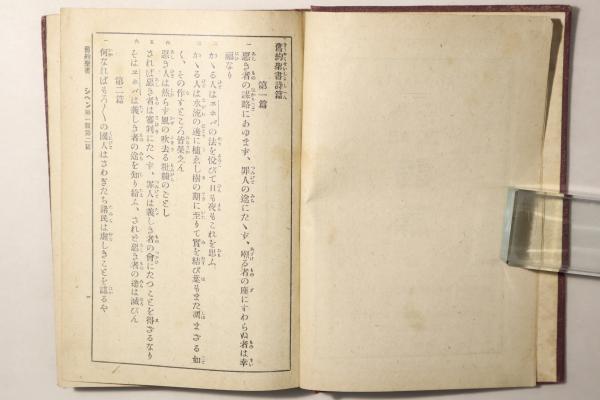 舊約聖書詩篇
第一篇
一 惡き者の謀略にあゆまず、罪人の途にたゝず、嘲る者の座にすわらぬ者は幸
福なり
二 かゝる人はヱホバの法を悅びて日も夜もこれを思ふ
三 かゝる人は水流の邊に植ゑし樹の期に至りて實を結び葉もまた凋まざる如
く、その作すところ皆榮えん
四 惡き人は然らず風の吹去る粃糠のごとし
五 されば惡き者は審判にたへず、罪人は義しき者の會にたつことを得ざるなり
六 そはヱホバは義しき者の途を知り給ふ、されど惡き者の途は滅びん
第二篇
一 何なればもろ〳〵の國人はさわぎたち諸民は虛しきことを謀るや
舊約聖書 シヘン 第一篇第二篇